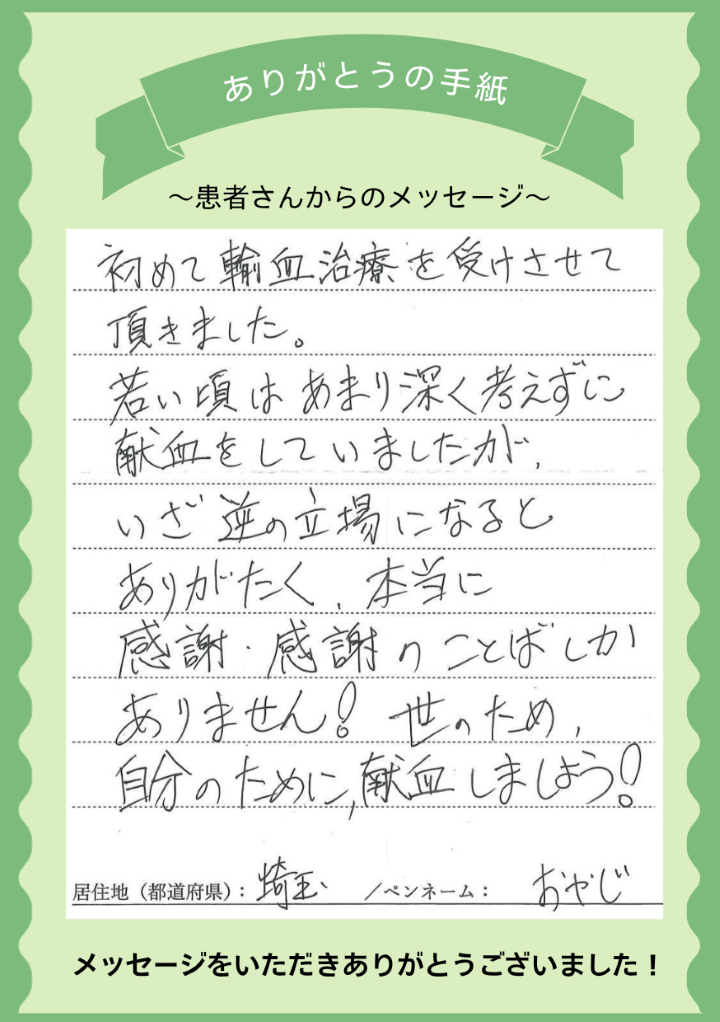 ありがとうの手紙
〜患者さんからのメッセージ〜
初めて輸血治療を受けさせて
頂きました。
若い頃はあまり深く考えずに
献血をしていましたが、
いざ逆の立場になると
ありがたく、本当に
感謝・感謝のことばしか
ありません! 世のため、
自分のために、献血しましょう!
居住地(都道府県): 埼玉 /ペンネーム: おやじ
メッセージをいただきありがとうございました!